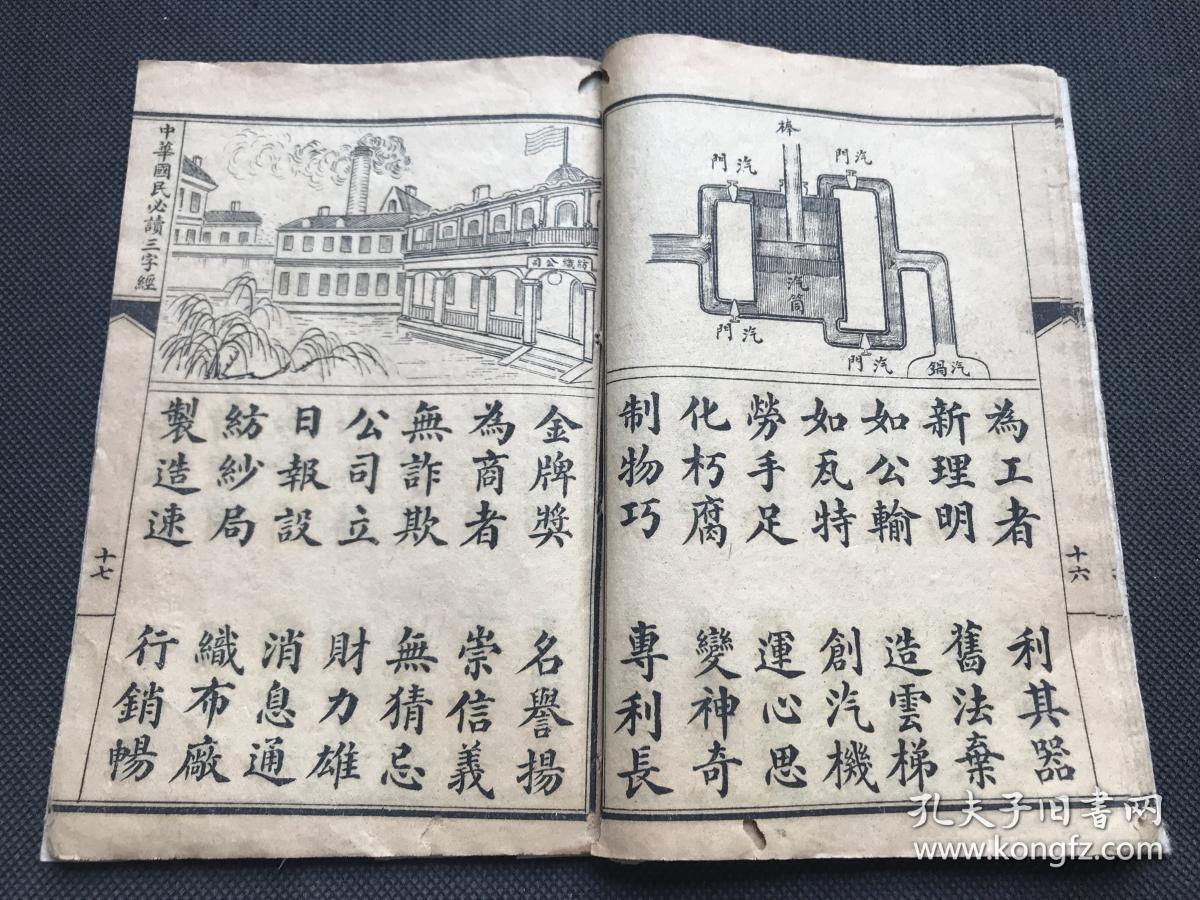 棒
汽門
汽門
汽筒
汽門
汽門
汽鍋
為工者
利其器
新理明
舊法棄
如公輸
造雲梯
如瓦特
創汽機
勞手足
運心思
化朽腐
變神奇
制物巧
專利長
十六
紡織公司
金牌獎
名譽揚
為商者
崇信義
無詐欺
無猜忌
公司立
財力雄
日報設
消息通
紡紗局
織布廠
製造速
行銷暢
中華國民必讀三字經
十七
孔夫子旧书网
www.kongfz.com